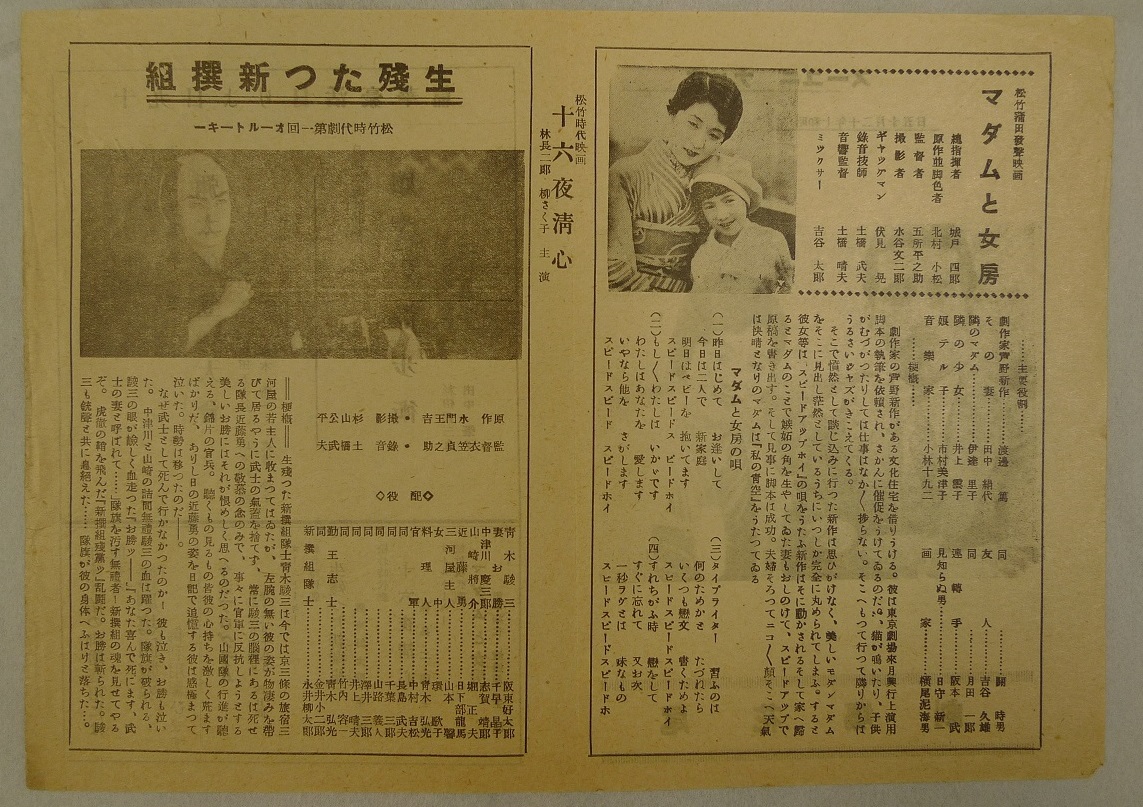 松竹蒲田發聲映画
マダムと女房
總指揮者 城戸四郎
原作並脚色者 北村小松
監督者 五所平之助
撮影者 水谷文二郎
ギャッグマン 伏見晃
錄音技師 土橋武夫
音響監督 土橋晴夫
ミックサー 吉谷太郎
……主要役割……
劇作家芦野新作……渡邊篤
その妻……田中絹代
隣のマダム……伊達里子
隣の少女……井上雪子
娘テル子……市村美津子
音樂家……小林十九二
同……關時男
友人……吉谷久雄
同……月田一郎
運轉手……坂本武
見知らぬ男……日守新一
画家……横尾泥海男
……梗概……
劇作家の芦野新作がある文化住宅を借りうける。彼は東京劇場來月興行上演用
脚本の執筆を依賴され、さかんに催促をうけてゐるのだが、猫が鳴いたり、子供
がむづがつたりしては仕事はなか〱捗らない。そこへもつて行つて隣りからは
うるさいジャズがきこえてくる。
そこで憤然として談じ込みに行つた新作は思ひがけなく、美しいモダンマダム
をそこに見出し茫然としているうちにいつしか完全に丸められてしまふ。すると
彼女等は、スピードアップホイ』の唄をうたふ新作はそに動かされるそして家へ歸
るとマダムのことで嫉妬の角を生やしてゐた妻もおしのけて、スピードアップで
原稿を書き出す。そして見事に脚本は成功。夫婦そろつてニコ〱顏そこへ天氣
は快晴となりのマダムは『私の青空』をうたつてゐる
マダムと女房の唄
(一)昨日はじめて お逢いして
今日は二人で 新家庭
明日はベビーを 抱いてます
スピードスピード スピードホイ
(二)もし〱わたしは いかゞです
わたしはあなたを 愛します
いやなら他を さがします
スピードスピード スピードホイ
(三)タイプライター 習ふのは
何のためかと たづれたら
いくつも戀文 書くためよ
スピードスピードスピードホイ
(四)すれちがふ時 戀をして
すぐに忘れて 又お次
一秒ラヴとは 味なもの
スピードスピードスピードホ
松竹時代映画
十六夜淸心
林長二郎 柳さく子 主演
生殘たつ新撰組
松竹時代劇第一回オールトーキー
原作 水門王吉・撮影 杉山公平
監督衣笠貞之助・錄音 土橋武夫
◇配役◇
靑木駿三……阪東好太郎
妻お勝……千早晶子
中津川慶三郎……志賀靖郎
山崎將介……堀正夫
近藤勇……日下部龍馬
三河屋主人……山本馨
女中……環歌子
料理人……靑木弘光
官軍……中村吉松
同……長島武夫
同……千葉三郎
同……山路義人
同……澤井三郎
同……井上晴夫
同……竹内容一
勤王志士……靑木弘光
同……金井小二郎
新撰組隊士……永井柳太郎
――梗概―― 生殘つた新撰組隊士靑木駿三は今では京三條の旅宿三
河屋の若主人に收まつてはゐたが、左腕の無い彼の姿が物凄みを帶
びて居るやうに武士の氣槪を捨てず、常に駿三の腦裡にあるは死せ
る隊長近藤勇への敬慕の念のみで、事々に官軍に反抗しようとする
美しいお勝にはそれが恨めしく思へるのだつた。山國隊の行進が聽
える、錦片の官兵。聽くもの見るもの皆彼の心持ちを激しく荒ます
ばかりだ、ありし日の近藤勇の姿を日記で追憶する彼は感極まつて
泣いた。時勢は移つたのだ――。
なぜ武士として死んで行かなかつたのか― 彼も泣き、お勝も泣い
た。 中津川と山崎の詰問無禮駿三の血は躍つた。隊旗が破られる、
駿三の眼が嶮しく血走つた『お勝ッ――』『あなた喜んで死にます、武
士の妻と呼ばれて……』隊旗を汚す無禮者!新撰組の魂を見せてやる
ぞ。虎徹の鞘を飛んだ『新撰組殘黨ッ』亂鬪だ。お勝は斬られた。駿
三も銃聲と共に息絕えた……隊旗が彼の身体へふはりと落ちた…。